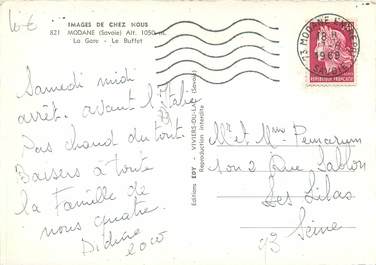 10€
IMAGES DE CHEZ NOUS
821 MODANE (Savoie) Alt. 1050 m.
La Gare - Le Buffet
Samedi midi
arrêt avant l'Italie
Pas chaud du tout
Baisers à toute
la Famille de
nous quatre.
Editions EDY - VIVIERS-DU-LAC (Savoie)
Reproduction interdite
73 MODANE
18 H
1968
REPUBLIQUE FRANÇAISE
Mr et Mme
Rue Sablon
Les Lilas
Seine
93